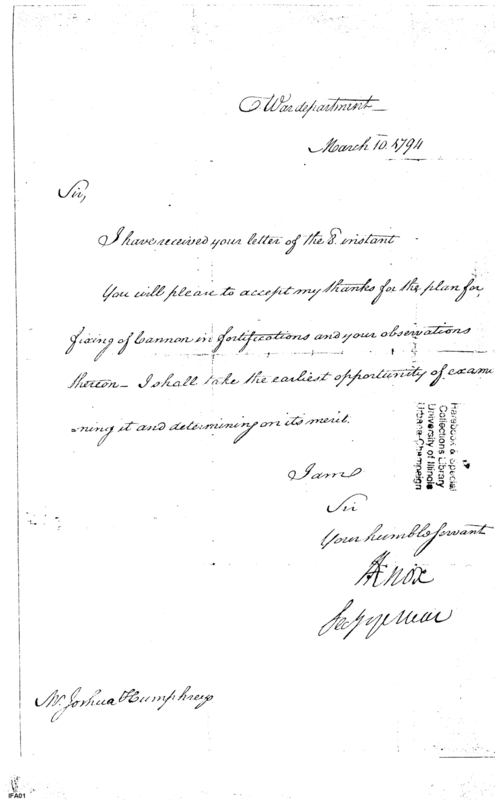 War department
March 10. 1794
Sir,
I have received your letter of the 8. instant
You will please to accept my thanks for the plan for
fixing of Cannon in fortifications and your observations
thereon _ I shall take the earliest opportunity of exami
-ning it and determining on its merit.
I am
Sir
Your humble Servant
HKnox
Secy of War
Mr. Joshua Humphreys
Rarebook & Special
Collections Library
University of Illinois
Urbana-Champaign
IFA01